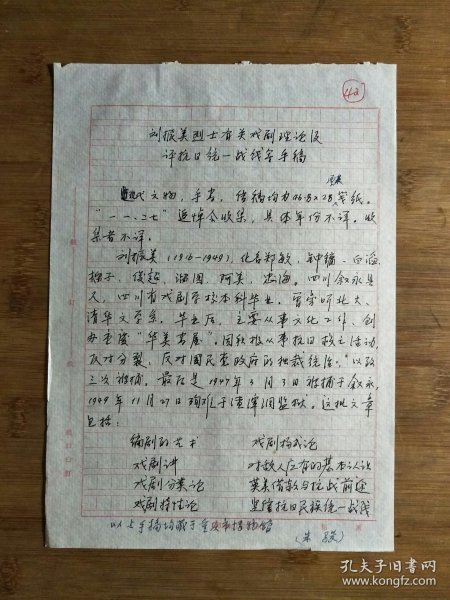 42
刘振美烈士有关戏剧理论及
评抗日统一战线等手稿
现代文物，手书，信稿均为26.8×28 宽纸。
"一一·二七"追悼会收集，具体年份不详。收
集者不详。
刘振美（1916-1949），化名郑敏、钟辐、白滔、
柳子、俊超、湘国、阿美、忠海。四川叙永县
人，四川省戏剧学校本科毕业，曾旁听北大、
清华文学系。毕业后，主要从事文化工作，创
办重庆"华美书屋"。因积极从事抗日救亡活动，
反对分裂、反对国民党政府的独裁统治，以致
三次被捕。最后是1947年3月3日被捕于叙永，
1949年11月27日殉难于渣滓洞监狱。这批文章
包括：
编剧的艺术 戏剧构成论
戏剧讲 对敌人应有的基本认识
戏剧分类论 英美借款与抗战前途
戏剧特性论 坚管抗日民族统一战线
以上手稿均藏于重庆市博物馆
孔夫子旧书网
book.kongfz.com